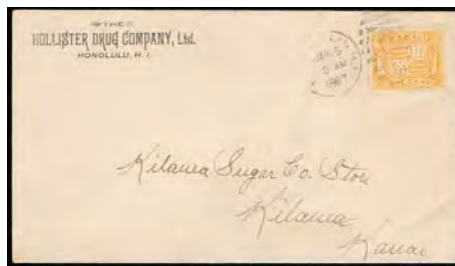 THE
HOLLISTER DRUG COMPANY, Ltd.
HONOLULU, H. I.
5
AM
1897
Kilauea Sugar Co. Store
Kilauea
Kauai